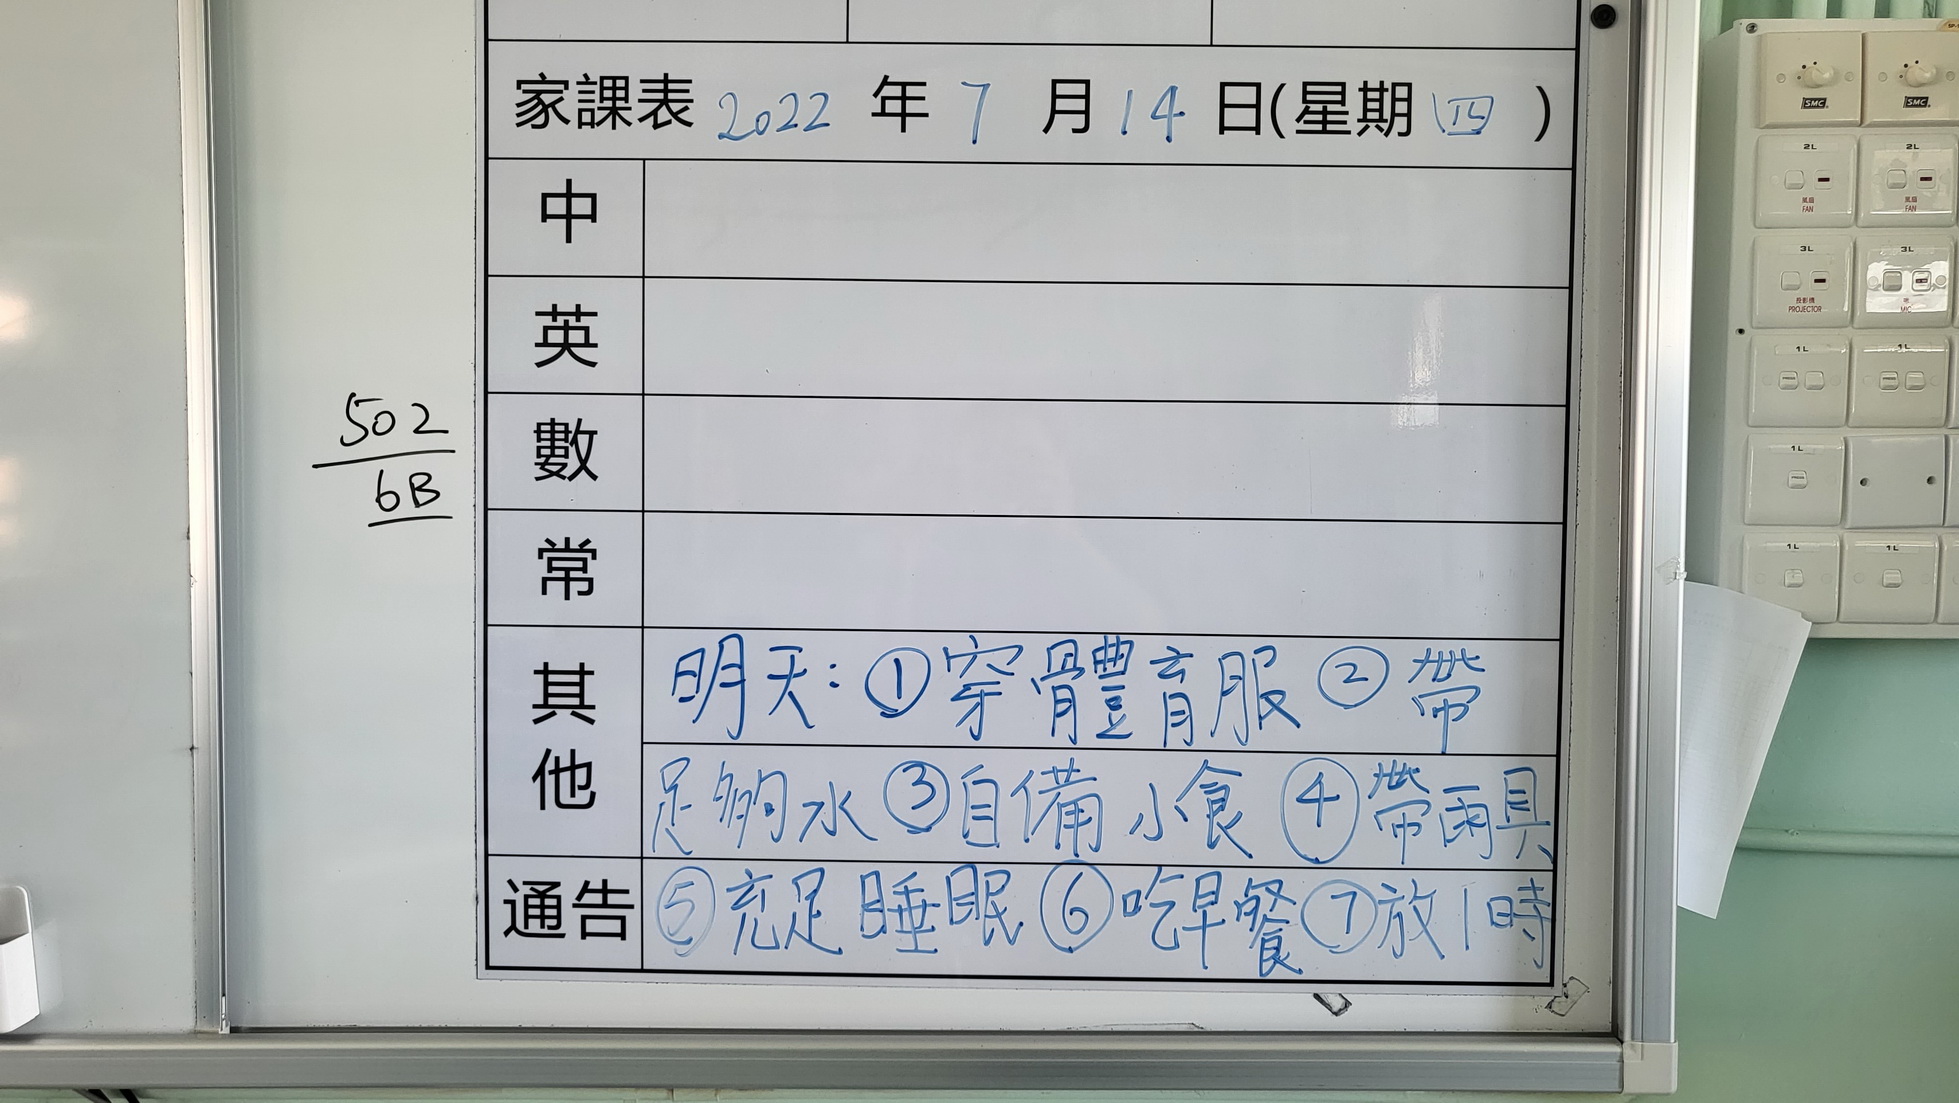 家課表 2022 年 7 月 14 日(星期 四 )
中
英
502
6B
數
常
其他
明天: ①穿體育服 ②帶
足夠水 ③自備小食 ④帶雨具
通告
⑤充足睡眠 ⑥吃早餐 ⑦放1時
SMC
SMC
2L
風扇
FAN
2L
風扇
FAN
3L
投影機
PROJECTOR
3L
咪
MIC
1L
1L
1L
1L
1L